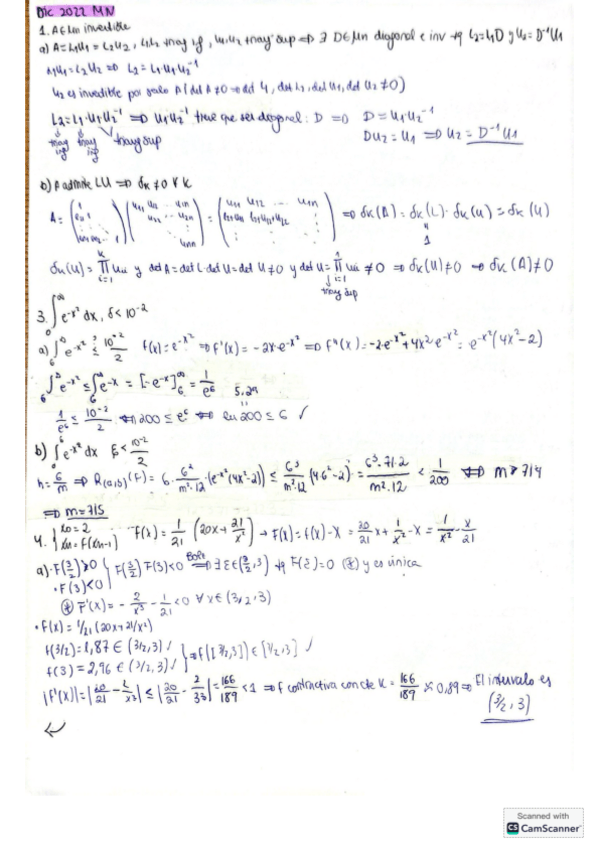 Dic 2022 MN
1. A∈Mn invertible
a) A=L1U1 = L2U2, L1L2 triang inf, U1,U2 triang sup => ∃ D∈Mn diagonal e inv tq L2=L1D y U2=D^-1U1
L1U1 = L2U2 => L2 = L1U1U2^-1
U2 es invertible
L2=L1·U1U2^-1 => U1U2^-1 tiene que ser diagonal: D => D=U1U2^-1
triang inf triang inf triang sup DU2=U1 => U2=D^-1U1
b) A admite LU => δk≠0 ∀ k
=> δk(A)=δk(L)·δk(U)=δk(U)
1
δk(U)= ∏ uii y det A=det L·det U=det U≠0 y det U= ∏ uii ≠0 => δk(U)≠0 => δk(A)≠0
triang sup
3. ∫ e^-x² dx, δ<10^-2
a) ∫ e^-x² ≤ 10^-2/2 f(x)=e^-x² => f'(x)=-2x·e^-x² => f''(x)=-2·e^-x²+4x²e^-x²=e^-x²(4x²-2)
∫ e^-x² ≤ ∫ e^-x = [-e^-x] = 1/e^6
1/e^6 ≤ 10^-2/2 <=> 200 ≤ e^6 <=> ln 200 ≤ 6 ✓
b) ∫ e^-x² dx < 10^-2/2
h=6/m => R(a,b)(f) = 6·6²/m²·12·(e^-x²(4x²-2)) ≤ 6³/m²·12 (4·6²-2) = 6³·71·2/m²·12 < 1/200 <=> m>714
=> m=715
4. { x0=2 xn=f(xn-1) f(x)=1/21 (20x+21/x²) → F(x)=f(x)-x = 20/21 x+1/x²-x = 1/x² - x/21
a)·F(3/2)>0
·F(3)<0
F(3/2)F(3)<0 => ∃ξ∈(3/2,3) tq F(ξ)=0 (*) y es única
(*) F'(x)=-2/x³-1/21<0 ∀x∈(3/2,3)
·f(x)=1/21(20x+21/x²)
f(3/2)=1,87∈(3/2,3) ✓
f(3)=2,96∈(3/2,3) ✓
=> f([3/2,3])∈[3/2,3] ✓
|f'(x)|=|20/21-2/x³|≤|20/21-2/3³|=166/189<1 => f contractiva con cte K=166/189≈0,89 => El intervalo es
(3/2,3)
Scanned with
CS CamScanner